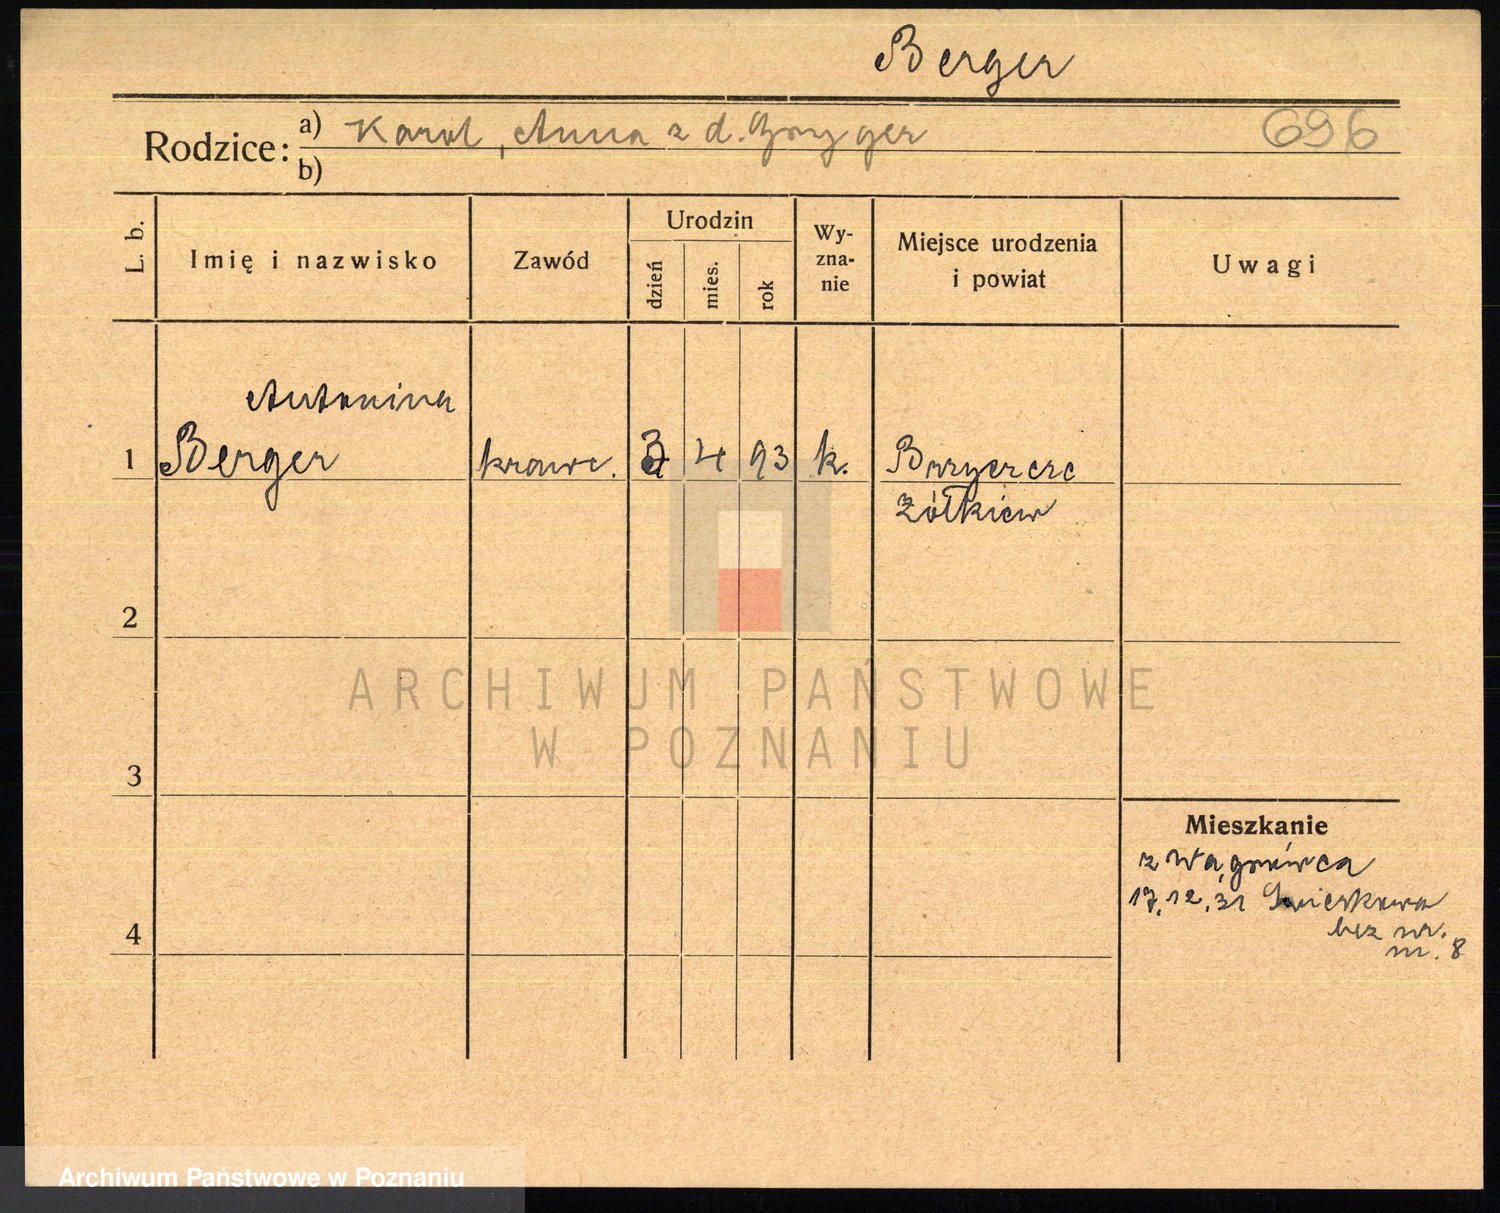 Berger
Rodzice: a) Karol, Anna z d. Gryger 696
b)
L. b. Imię i nazwisko Zawód Urodzin dzień mies. rok Wy-zna-nie Miejsce urodzenia i powiat Uwagi
Antonina
1 Berger krawc. 4 93 k.
Żółkiew
2
ARCHIWUM PAŃSTWOWE
W POZNANIU
3
Mieszkanie
z Wągrówca
17.12.31
bez nr.
4 m. 8
Archiwum Państwowe w Poznaniu